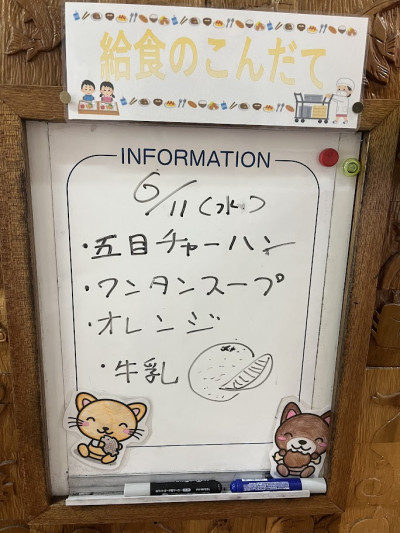 給食のこんだて
INFORMATION
6/11(水)
・五目チャーハン
・ワンタンスープ
・オレンジ
・牛乳